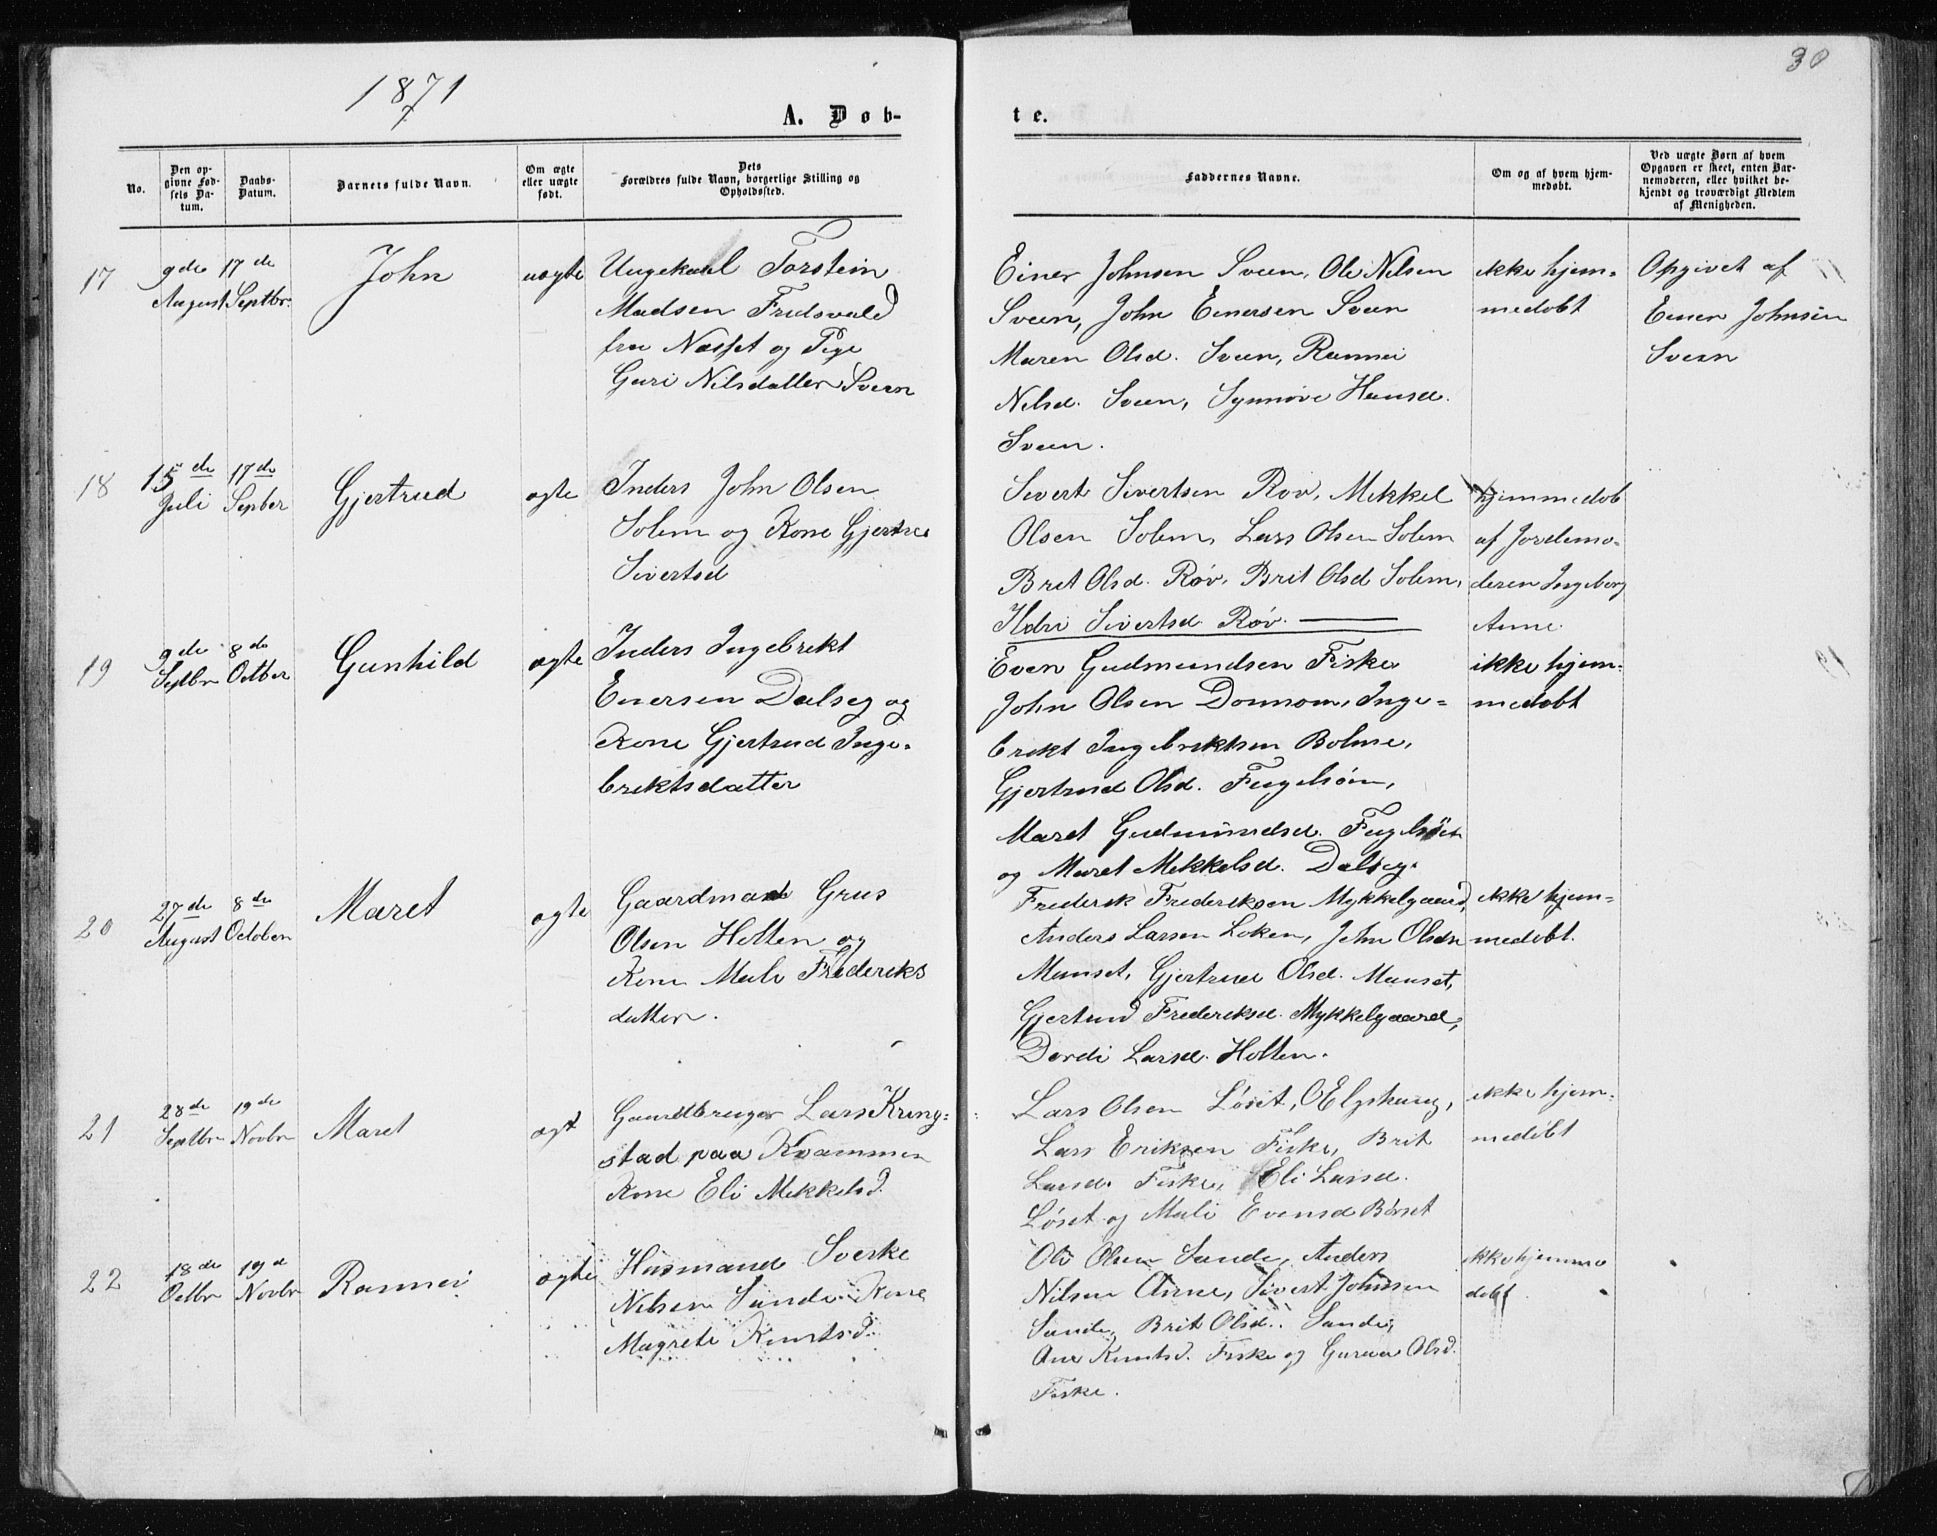 1871
30
A. Døb-
te.
No.
Den op-
givne Fød-
sels Da-
tum.
Daabs-
Datum.
Barnets fulde Navn.
Om ægte
eller uægte
født.
Dets
Forældres fulde Navn, borgerlige Stilling og
Opholdssted.
Faddernes Navne.
Om og af hvem hjem-
medøbt.
Ved uægte Børn af hvem
Opgaven er skeet, enten Bar-
nemoderen, eller hvilket be-
kjendt og troværdigt Medlem
af Menigheden.
17
9de
August
17de
Septbr.
John
uægte
Ungekarl Torstein
Madsen Fredsvold
fra Næsset og Pige
Guri Nilsdatter Sveen
Einer Johnsen Sveen, Ole Nilsen
Sveen, John Einersen Sveen
Maren Olsd. Sveen, Rannei
Nilsd. Sveen, Synnøve Hansd.
Sveen.
ikke hjem=
medøbt
Opgivet af
Einer Johnsen
Sveen
18
15de
Juli
17de
Septber
Gjertrud
ægte
Inders John Olsen
Solem og Kone Gjertru
Sivertsd
Sivert Sivertsen Røv, Mikkel
Olsen Solem, Lars Olsen Solem
Brit Olsd. Røv, Brit Olsd Solem,
Ildri Sivertsd. Røv.
hjemmedøb
af Jordemo-
deren Ingeborg
Anne.
19
9de
Septbr
8de
Octber
Gunhild
ægte
Inders Ingebrikt
Enersen Dalseg og
Kone Gjertrud Inge-
briktsdatter
Even Gudmundsen Fiske
John Olsen Donnem, Inge=
brikt Ingebriktsen Bolme,
Gjertrud Olsd. Fugelsøen,
Maret Gudmundsd. Fugelsöen
og Maret Mikkelsd. Dalseg.
ikke hjem-
medøbt
20
27de
August
8de
October
Maret
ægte
Gaardmand Grus
Olsen Holten og
Kone Mali Frederiks
datter.
Frederik Frederiksen Mykkelgaard,
Anders Larsen Løken, John Olsen
Munset, Gjertrud Olsd. Munset,
Gjertrud Frederiksd. Mykkelgaard,
Dordi Larsd. Holten.
ikke hjem=
medøbt.
21
28de
Septbr
19de
Novbr
Maret
ægt
Gaardbruger Lars Kring=
stad paa Kvammen
Kone Eli Mikkelsd.
Lars Olsen Løset, O Elgshaug,
Lars Eriksen Fiske, Brit
Larsd. Fiske, Eli Larsd.
Løset og Mali Evensd Børset
ikke hjem-
medøbt
22
18de
Octbr
19de
Novbr
Rannei
ægte
Husmand Sverke
Nilsen Sande Kone
Magrete Knutsd.
Ole Olsen Sande, Anders
Nilsen Anne, Sivert Johnsen
Sande, Brit Olsd. Sande,
Ane Knutsd. Fiske og Gurua Olsd.
Fiske.
ikke hjemme
døbt